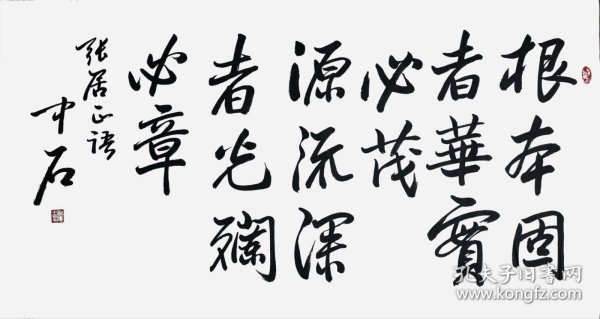 根本固
者華實
必茂
源流深
者光斓
必章
張居正語
中石
孔夫子旧书网
www.kongfz.com